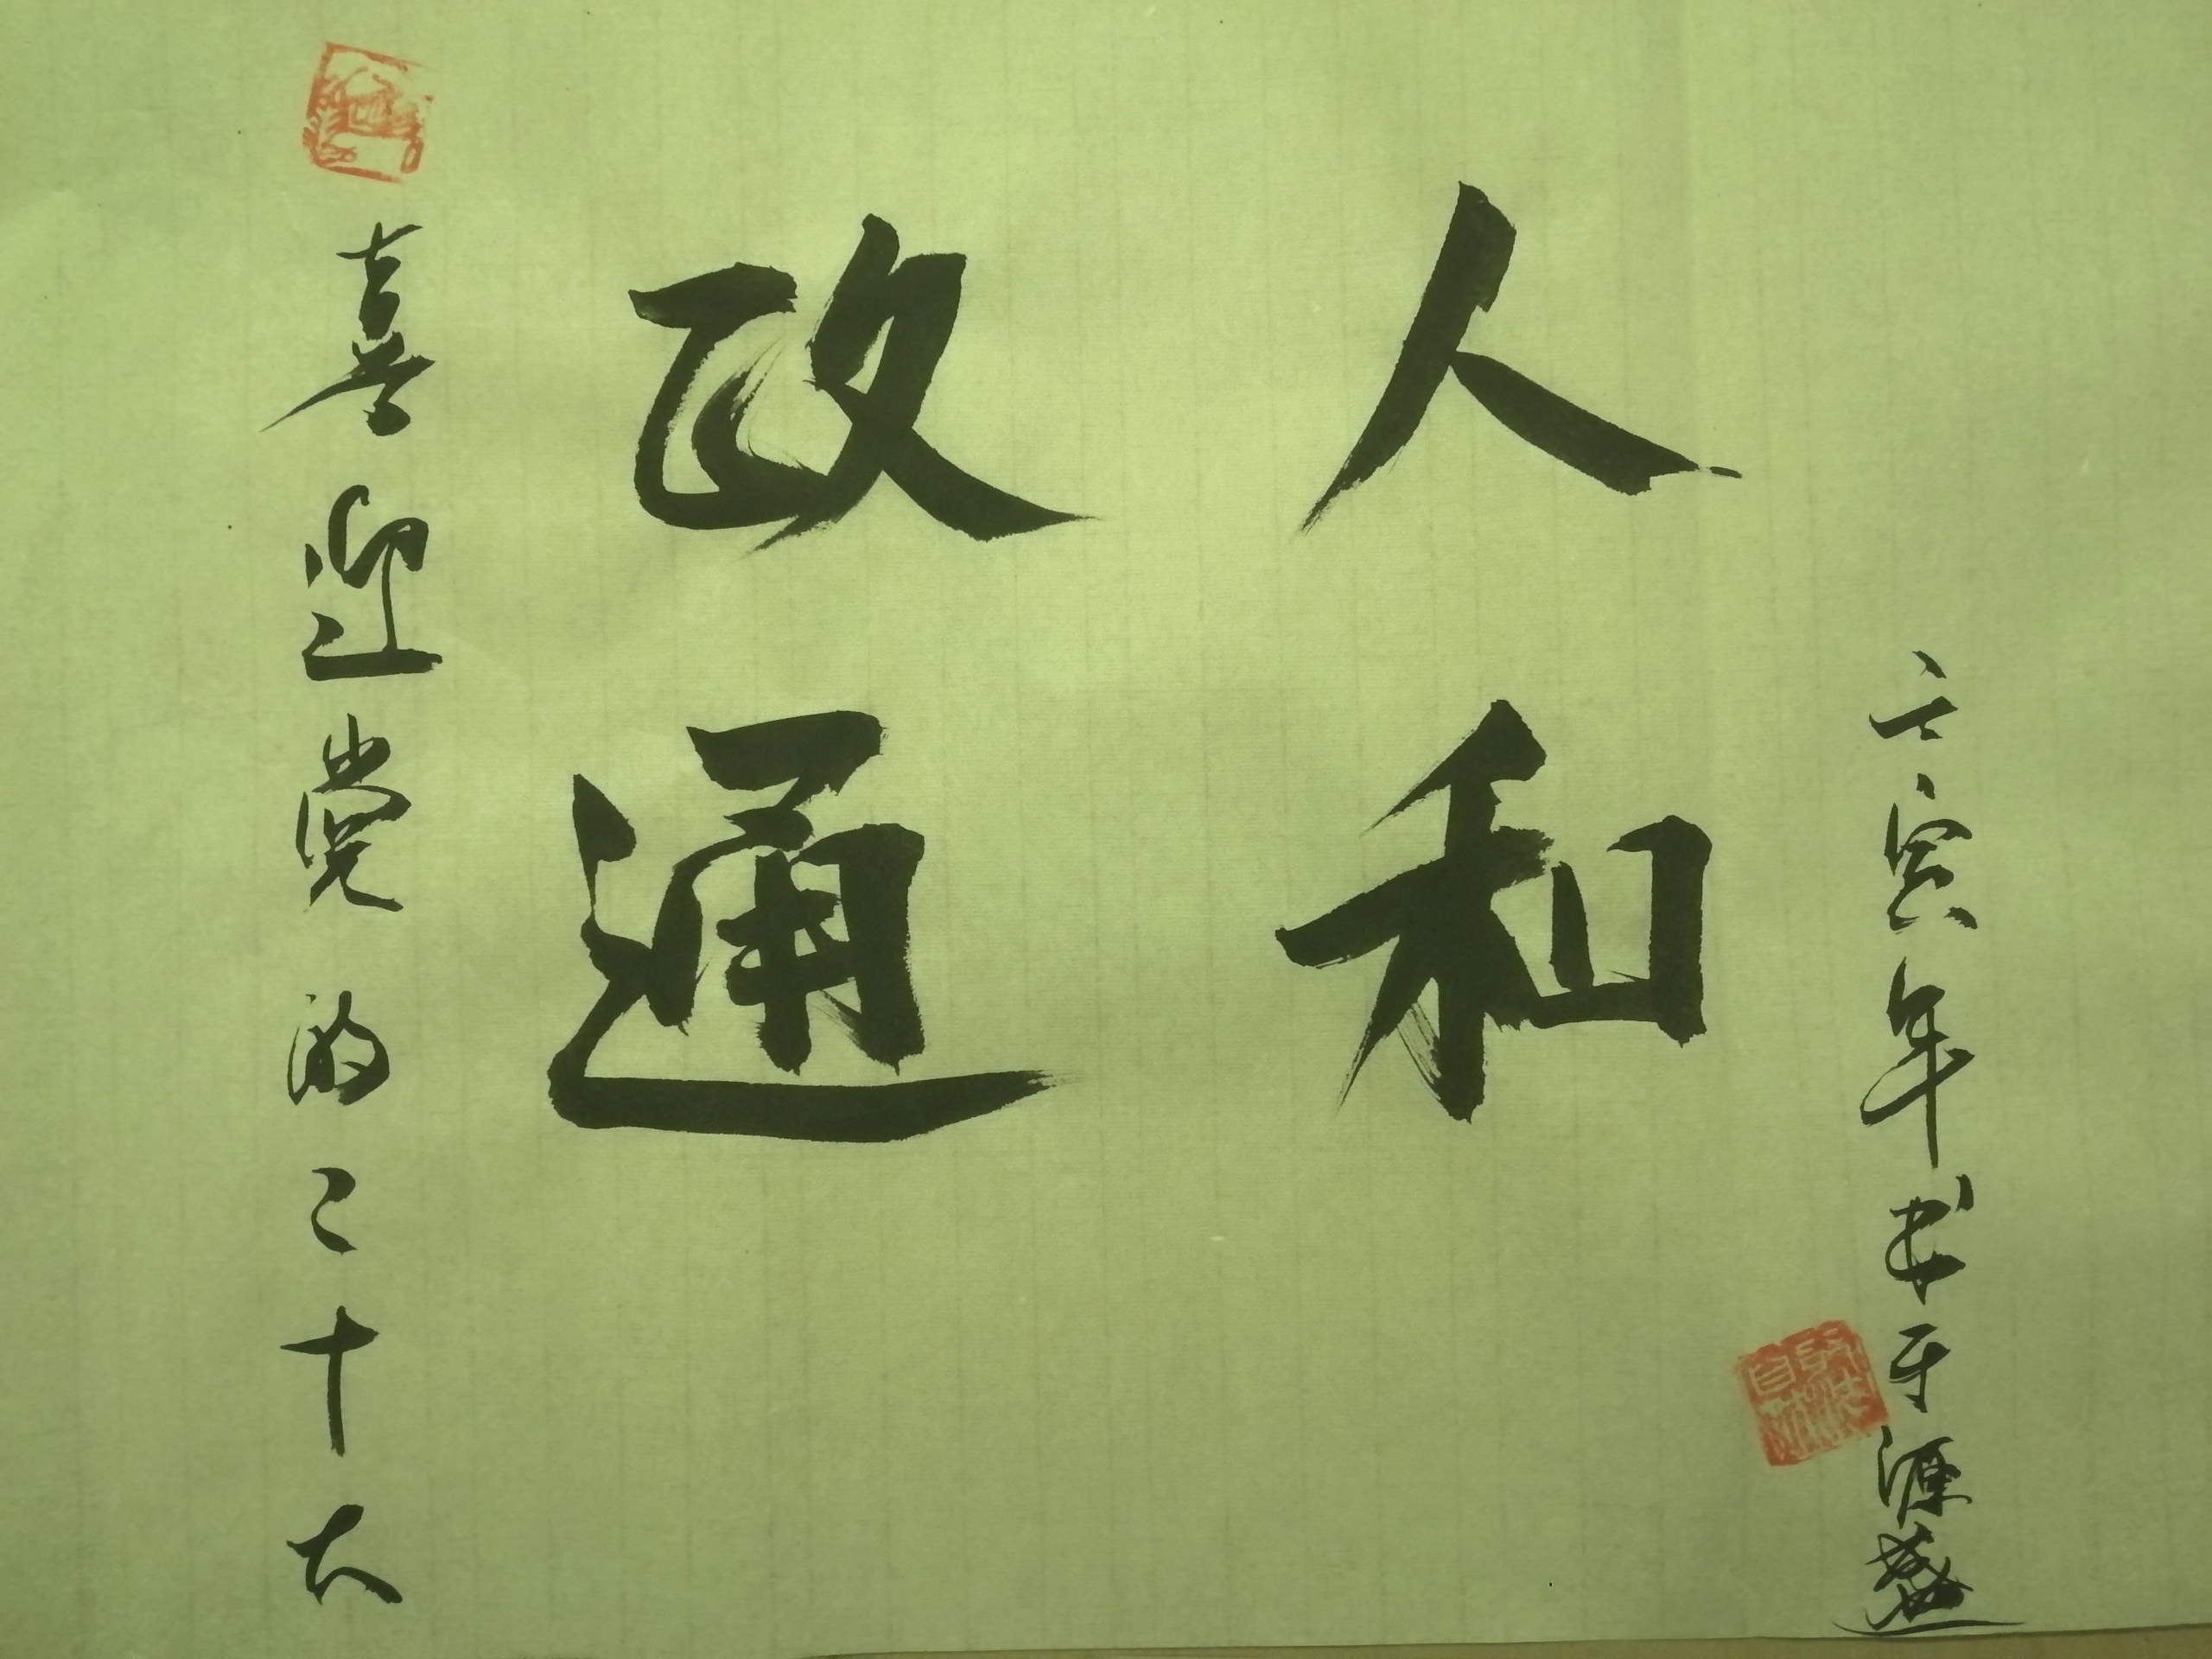 喜迎党的二十大
政通
人和
壬寅年书于